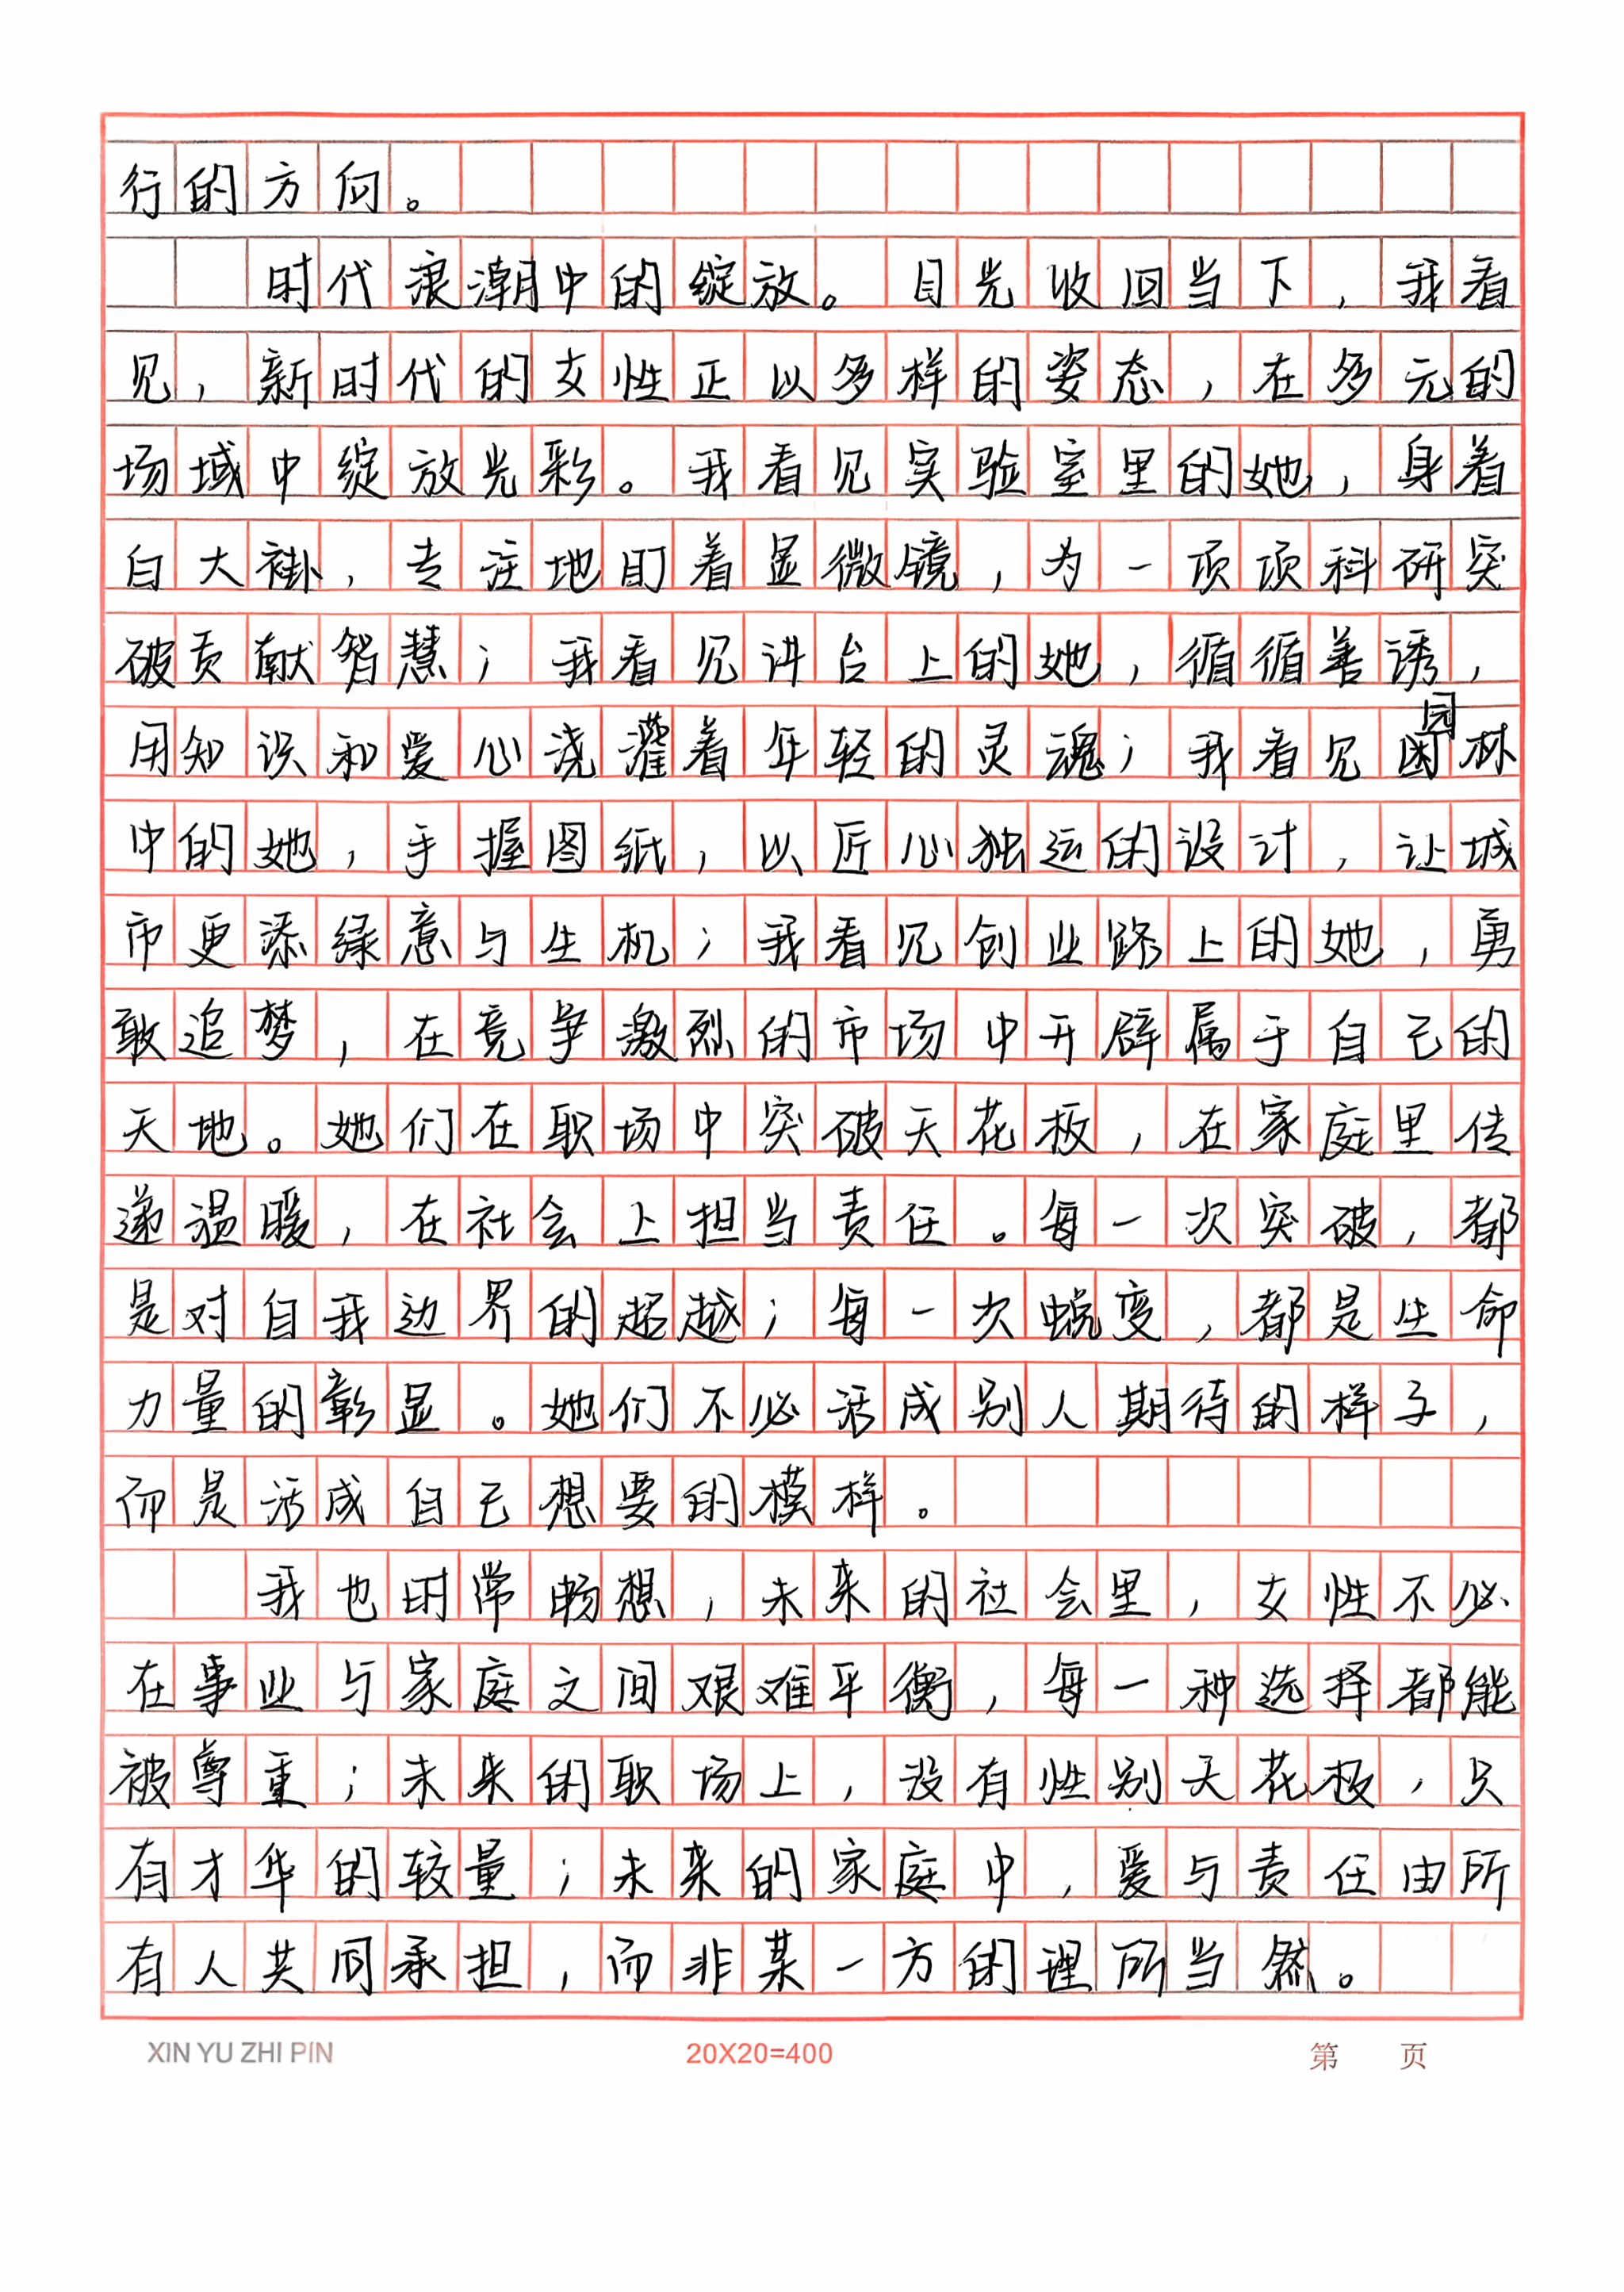 行的方向。
时代浪潮中的绽放。目光收回当下，我看
见，新时代的女性正以多样的姿态，在多元的
场域中绽放光彩。我看见实验室里的她，身着
白大褂，专注地盯着显微镜，为一项项科研突
破贡献智慧；我看见讲台上的她，循循善诱，
用知识和爱心浇灌着年轻的灵魂；我看见园林
中的她，手握图纸，以匠心独运的设计，让城
市更添绿意与生机；我看见创业路上的她，勇
敢追梦，在竞争激烈的市场中开辟属于自己的
天地。她们在职场中突破天花板，在家庭里传
递温暖，在社会上担当责任。每一次突破，都
是对自我边界的超越；每一次蜕变，都是生命
力量的彰显。她们不必活成别人期待的样子，
而是活成自己想要的模样。
我也时常畅想，未来的社会里，女性不必
在事业与家庭之间艰难平衡，每一种选择都能
被尊重；未来的职场上，没有性别天花板，只
有才华的较量；未来的家庭中，爱与责任由所
有人共同承担，而非某一方的理所当然。
XIN YU ZHI PIN 20X20=400 第 页